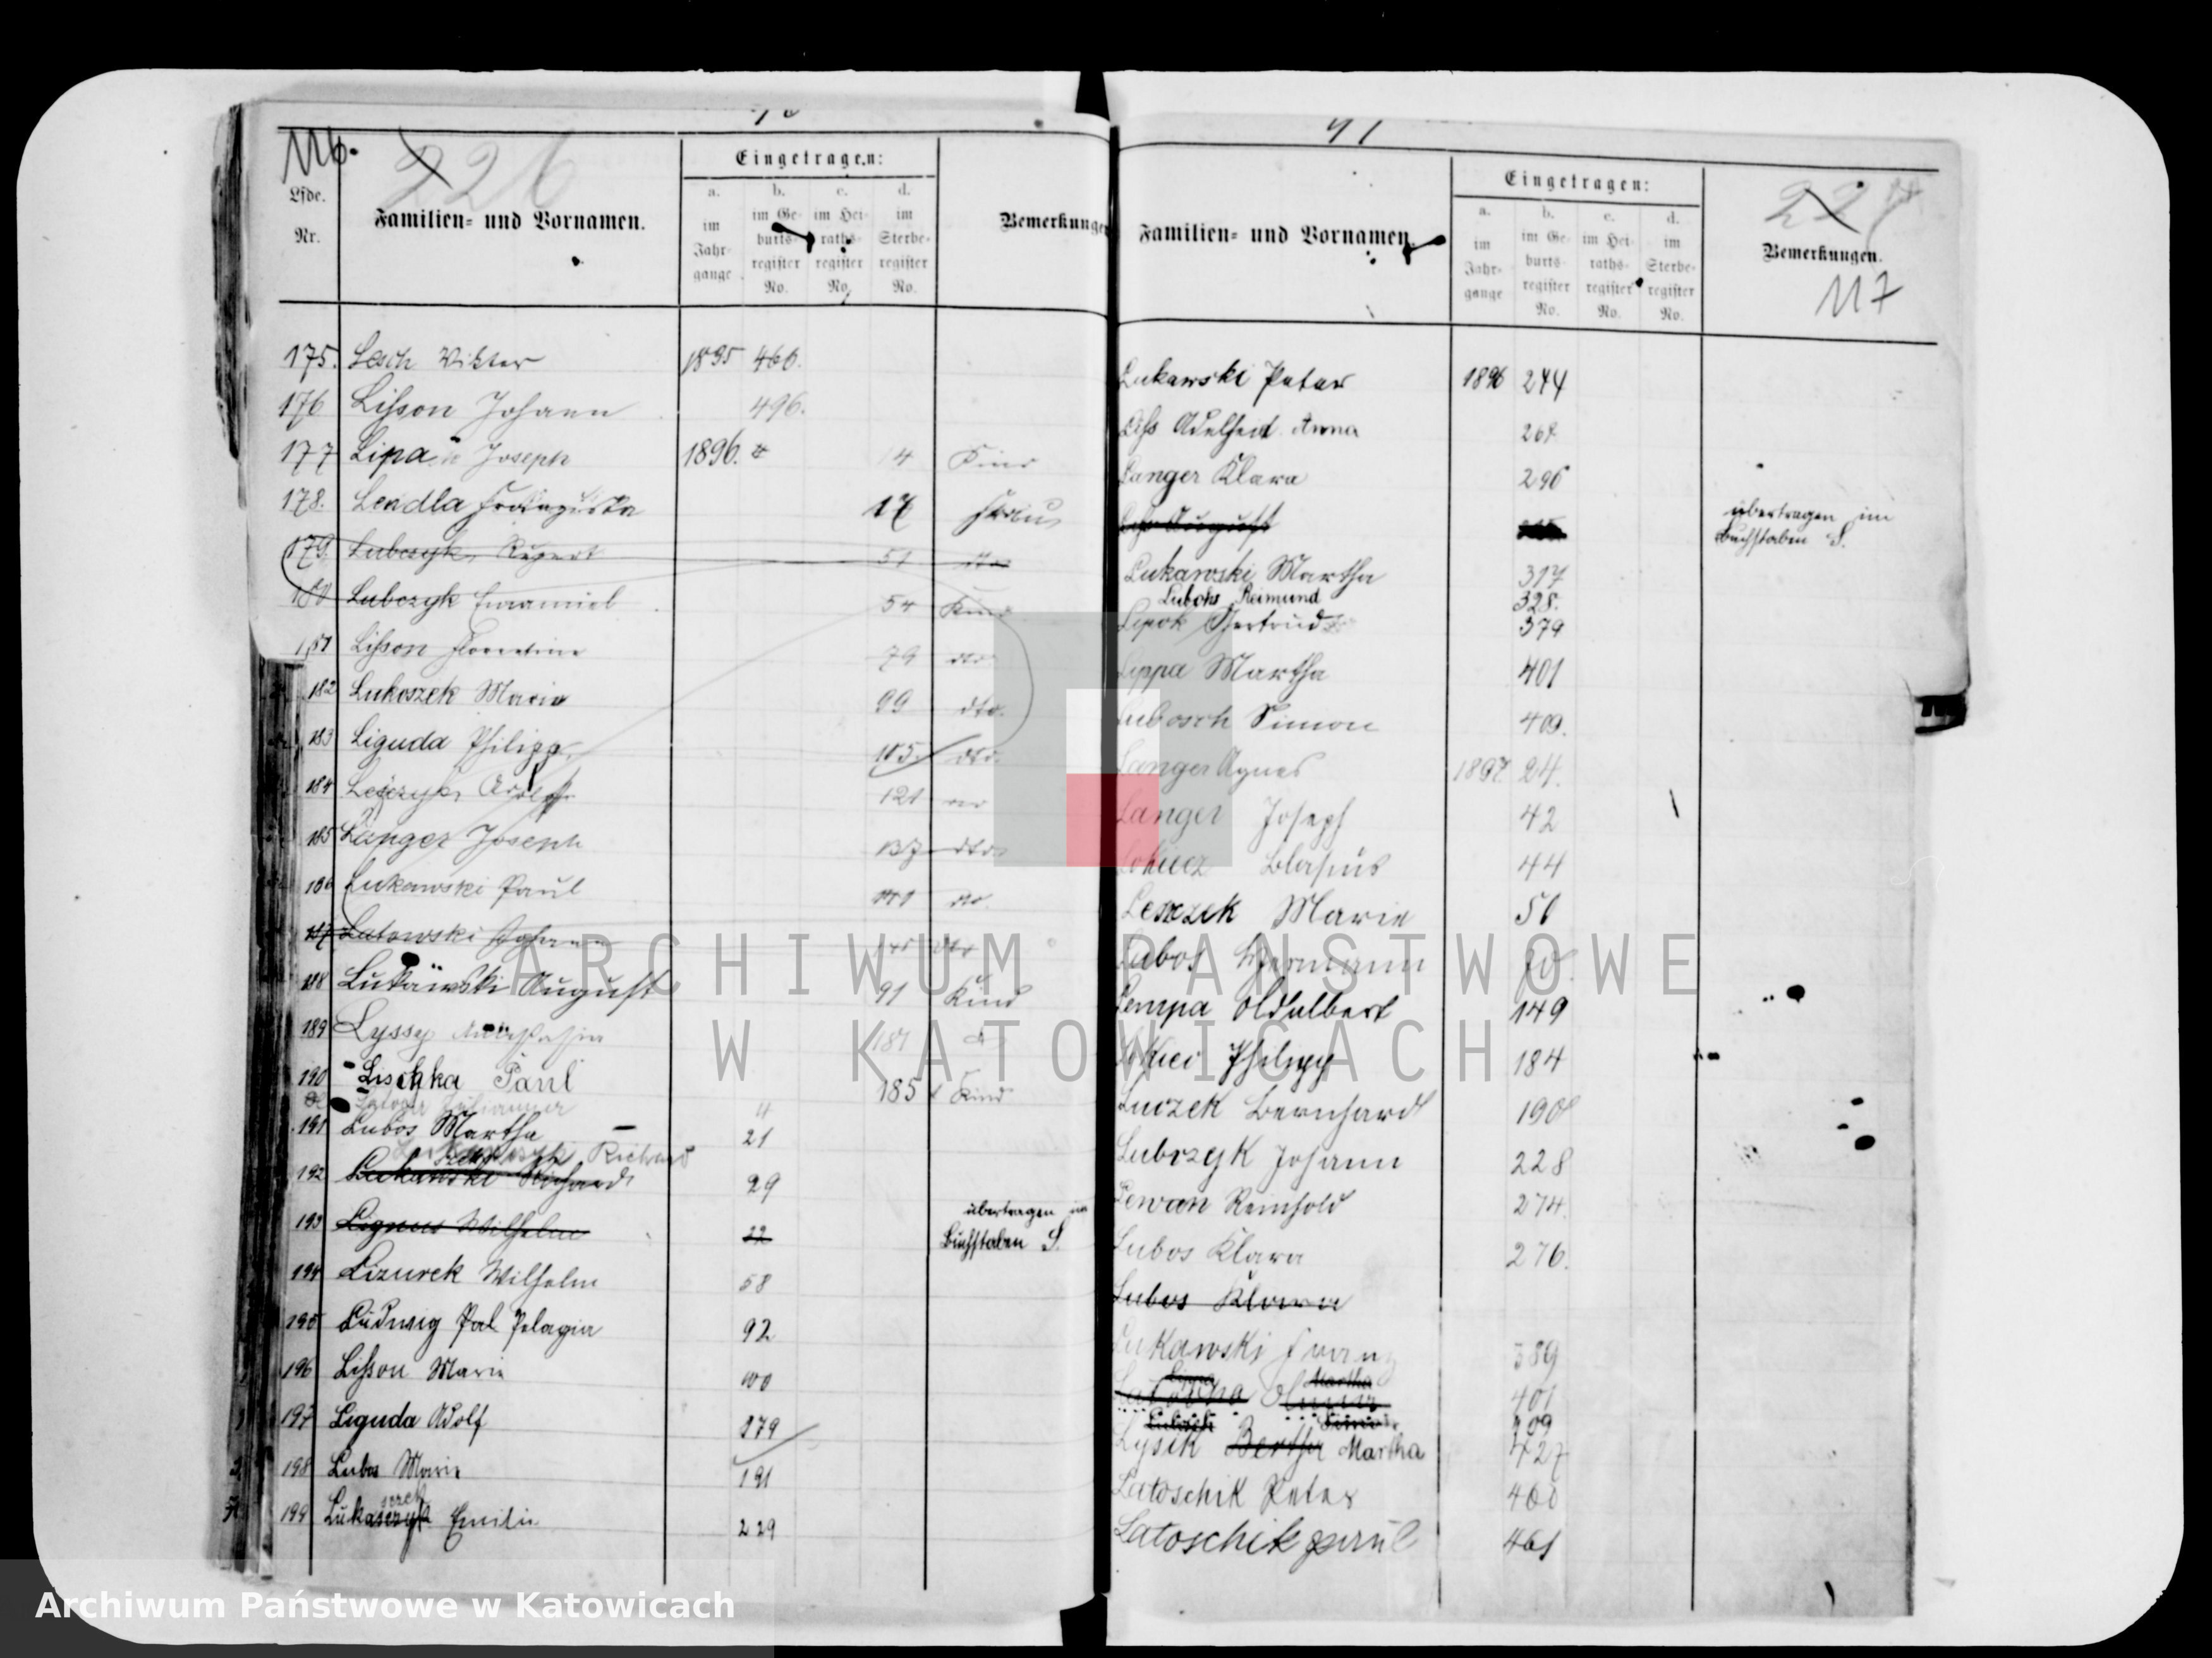 116.
226
Lfde. Nr.
Familien- und Vornamen.
Eingetragen:
a. im Jahrgange
b. im Geburtsregister No.
c. im Heirathsregister No.
d. im Sterberegister No.
Bemerkungen
175. Lesch Viktor 1895 466.
176 Lisson Johann 496.
177 Lipa Joseph 1896. 4 Kind
178. Lendla 17
179. Lubczyk, 51 dto
180 Lubczyk Emanuel 54 Kind
181 Lisson Florentine 79 dto
182 Lukoszek Marie 99 dto.
183 Liguda Philipp 105 dto.
184 Adolf 121 dto
185 Langer Joseph 137 dto
186 Lukawski Paul dto.
187 Latowski Johann dto
188 Lukawski August 91 Kind
189 Lyssy 181
190 Lischka Paul 185 Kind
191 Lubos Martha 21
Richard
192 Lukawski Richard 29
193 Lignus Wilhelm 22 übertragen im
Buchstaben S.
194 Lizurek Wilhelm 58
195 Ludwig Pelagia 92
196 Lisson Marie 100
197 Liguda Adolf 179
198 Lubos Marie 191
szek
199 Lukasczyk Emilie 229
91
Familien- und Vornamen.
Eingetragen:
a. im Jahrgange
b. im Geburtsregister No.
c. im Heirathsregister No.
d. im Sterberegister No.
227
Bemerkungen.
117
Lukawski Peter 1896 244
Adelheid Anna 268
Langer Klara 296
August übertragen im
Buchstaben S.
Lukawski Martha 317
Lubos Reimund 328.
Lepok Gertrud 379
Lippa Martha 401
Lubosch Simon 409.
Langer Agnes 1897 24.
Langer Joseph 42
Blasius 44
Leszek Marie 51
Lubos Hermann 70.
Lempa Adalbert 149
Philipp 184
Luczek Bernhard 190
Lubczyk Johann 228
Lewan Reinhold 274.
Lubos Klara 276.
Lubos Klara
Lukawski Franz 389
Lippa Martha 401
Simon 409
Lysik Bertha Martha 427
Latoschik Peter 460
Latoschik Paul 461
ARCHIWUM PAŃSTWOWE
W KATOWICACH
Archiwum Państwowe w Katowicach